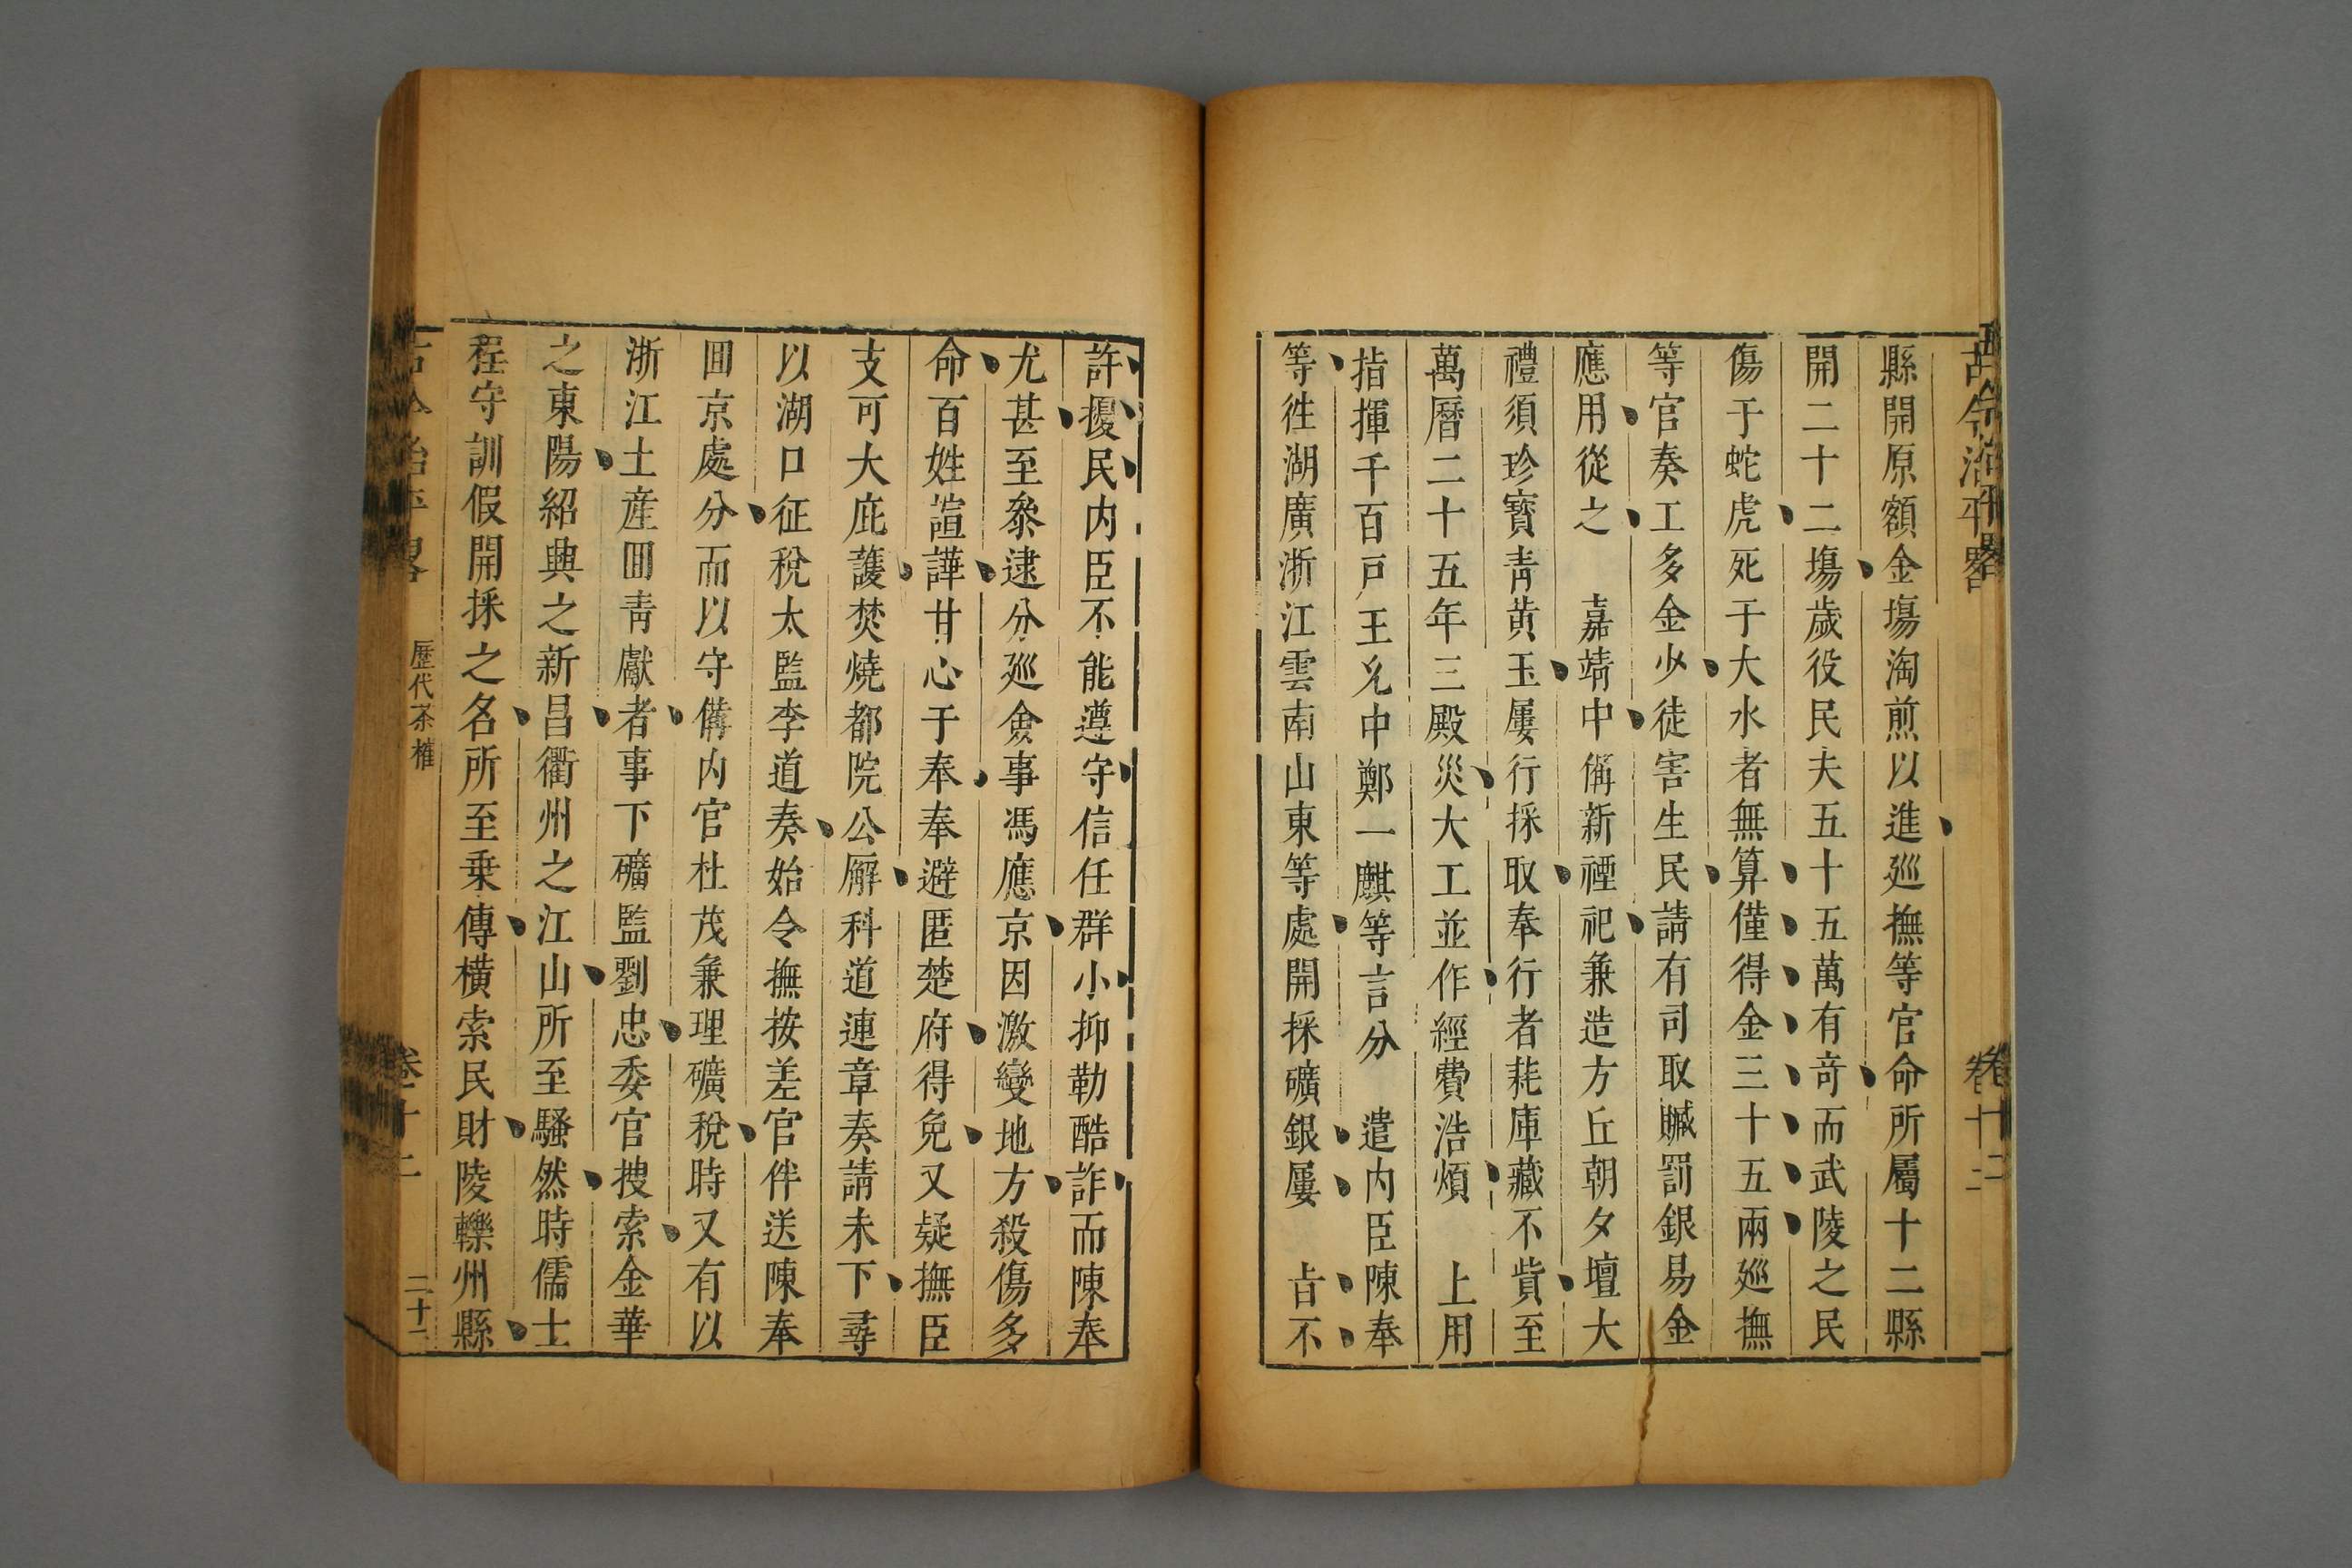 古今治平畧
卷十二
縣開原額金塲淘煎以進廵撫等官命所屬十二縣
開二十二塲歲役民夫五十五萬有竒而武陵之民
傷于蛇虎死于大水者無算僅得金三十五兩廵撫
等官奏工多金少徒害生民請有司取贓罰銀易金
應用從之　嘉靖中稱新禋祀兼造方丘朝夕壇大
禮須珍寳青黄玉屢行採取奉行者耗庫藏不貲至
萬曆二十五年三殿災大工並作經費浩煩　上用
指揮千百戸王允中鄭一麒等言分　遣内臣陳奉
等徃湖廣浙江雲南山東等處開採礦銀屢　旨不
許擾民内臣不能遵守信任群小抑勒酷詐而陳奉
尤甚至叅逮分廵僉事馮應京因激變地方殺傷多
命百姓諠譁甘心于奉奉避匿楚府得免又疑撫臣
支可大庇護焚燒都院公廨科道連章奏請未下尋
以湖口征稅太監李道奏始令撫按差官伴送陳奉
囬京處分而以守備内官杜茂兼理礦稅時又有以
浙江土産囬青獻者事下礦監劉忠委官搜索金華
之東陽紹興之新昌衢州之江山所至騷然時儒士
程守訓假開採之名所至乗傳橫索民財陵轢州縣
古今治平畧
歷代茶榷
卷十二
二十二